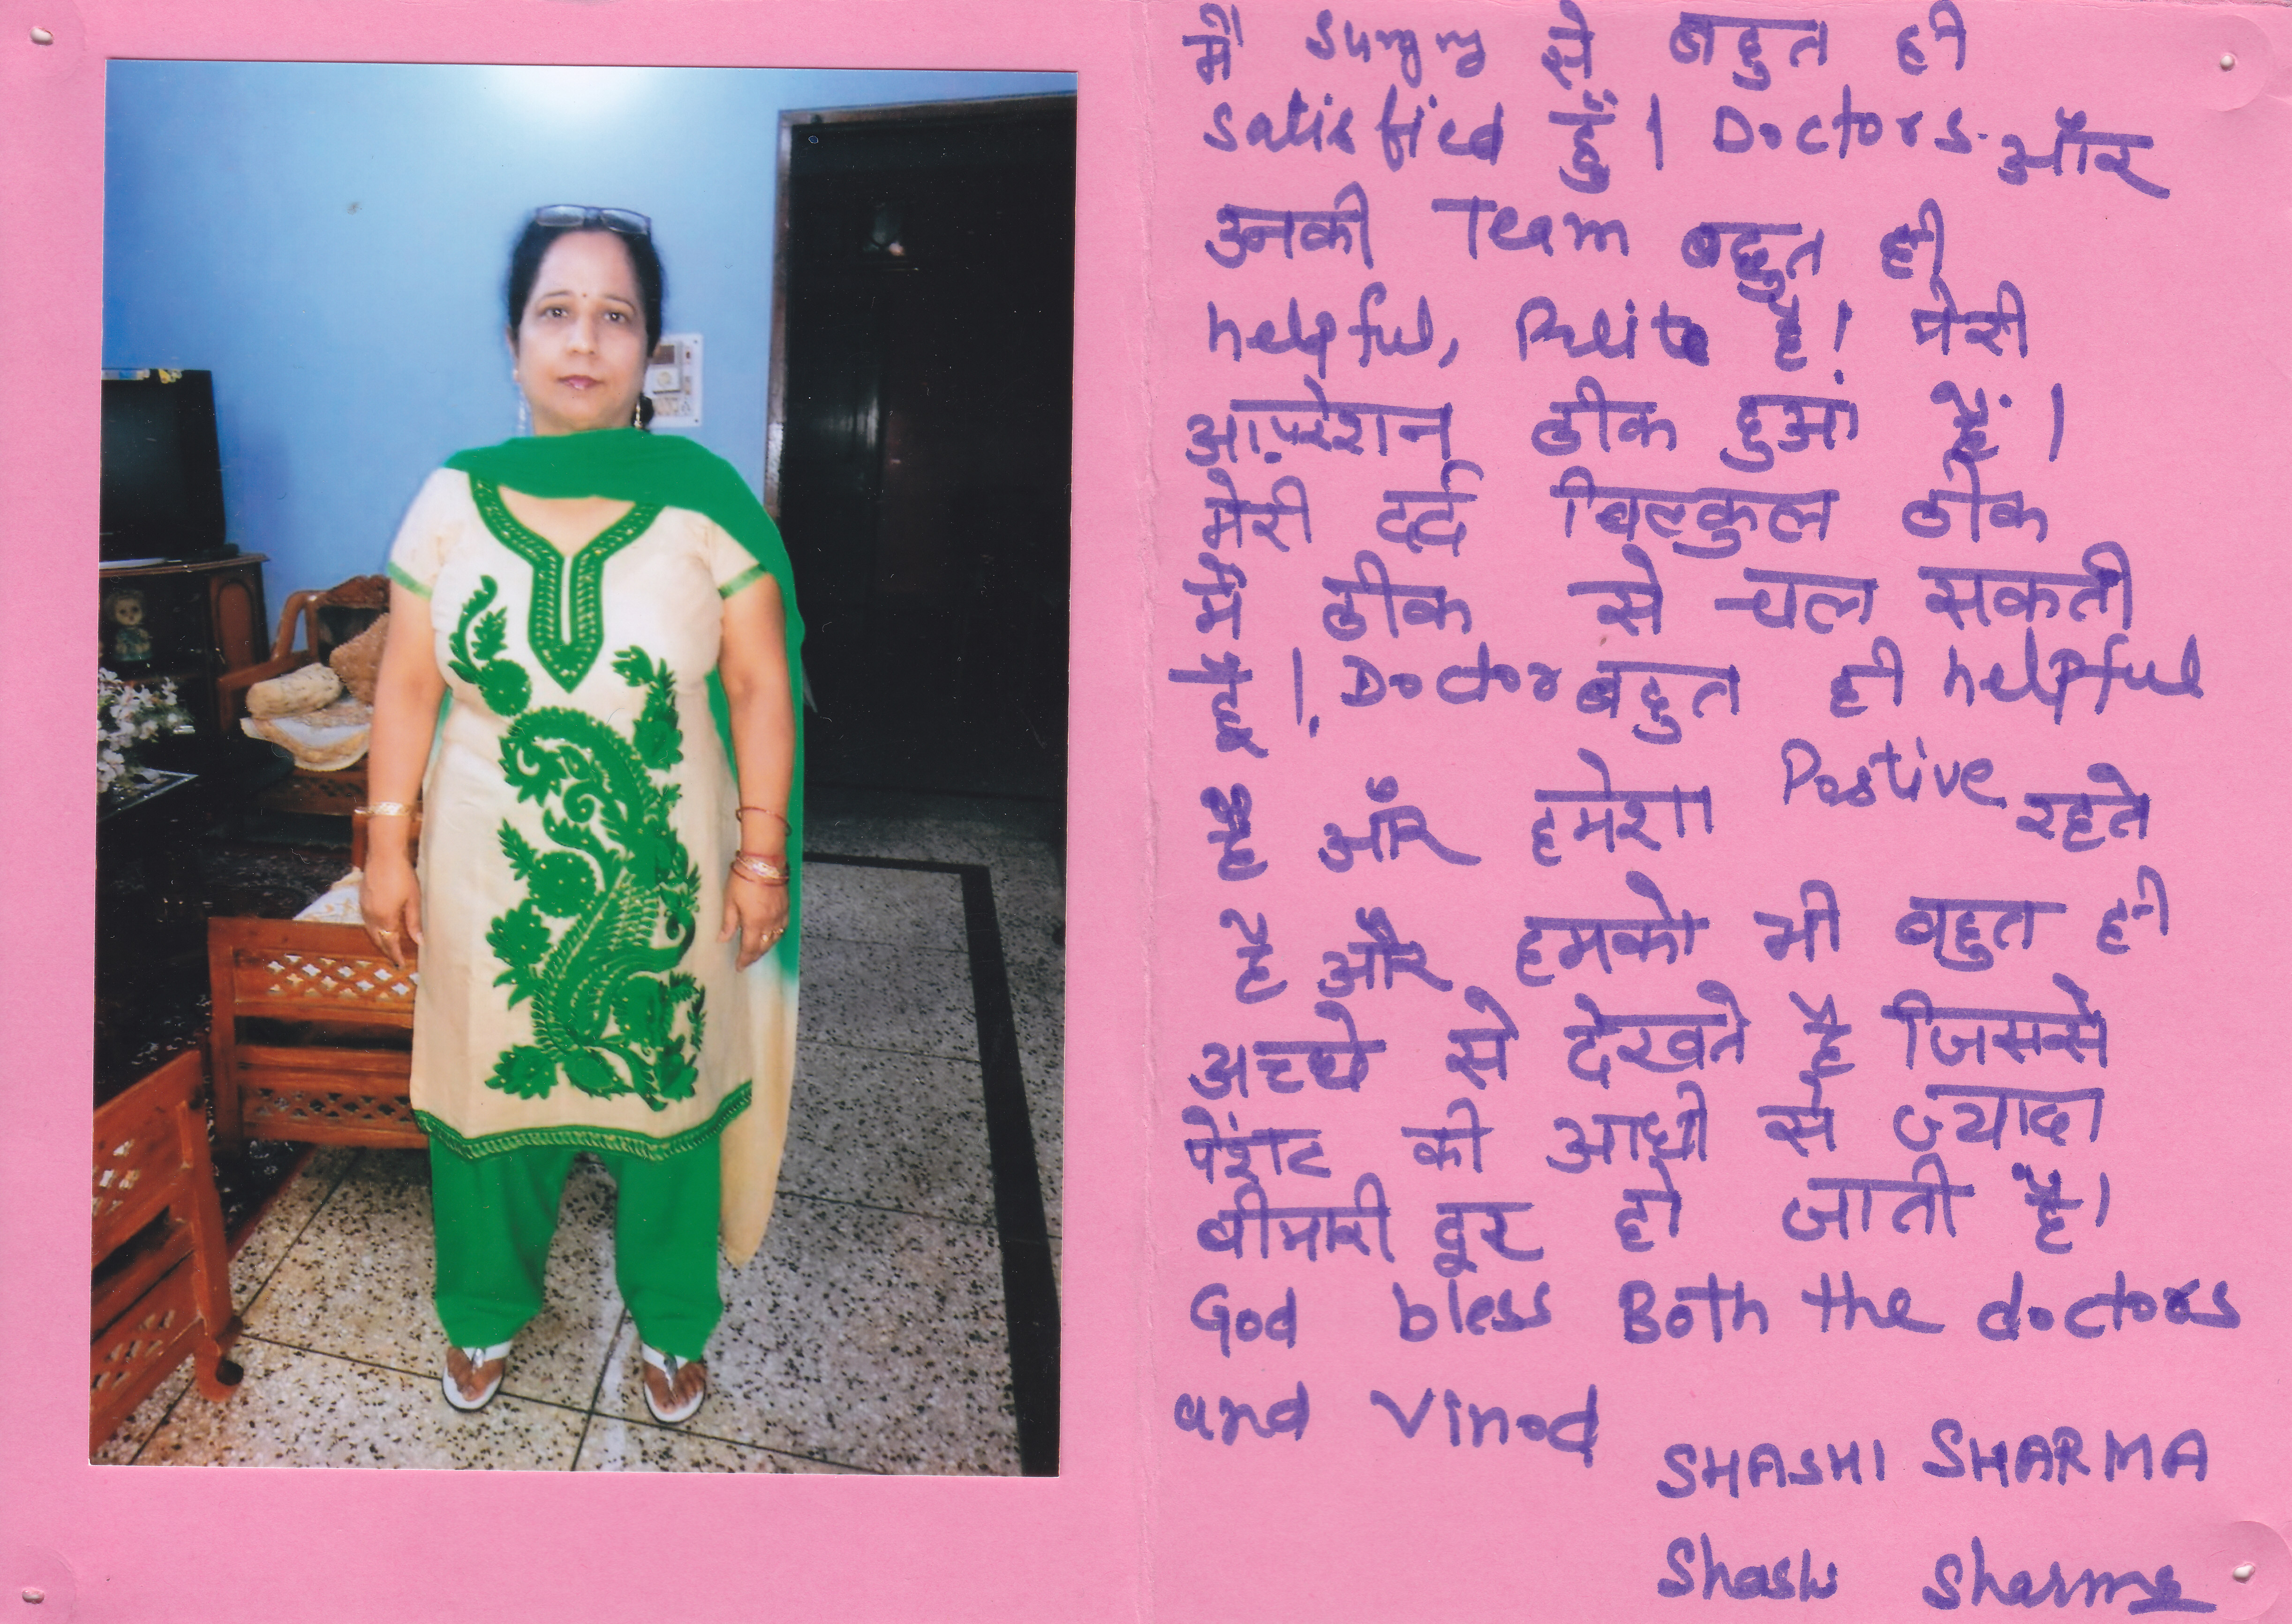 मैं surgry से बहुत ही
satisfied हूँ। Doctors और
उनकी Team बहुत ही
helpful, Pulite है। मेरी
आप्रेशन ठीक हुआ हैं।
मेरी दर्द बिल्कुल ठीक
मैं ठीक से चल सकती
हूँ। Doctor बहुत ही helpful
है और हमेशा Postive रहते
है और हमको भी बहुत ही
अच्छे से देखते है जिससे
पेशंट की आधी से ज्यादा
बीमारी दूर हो जाती है।
God bless Both the doctors
and Vinod
SHASHI SHARMA
Shashi Sharma